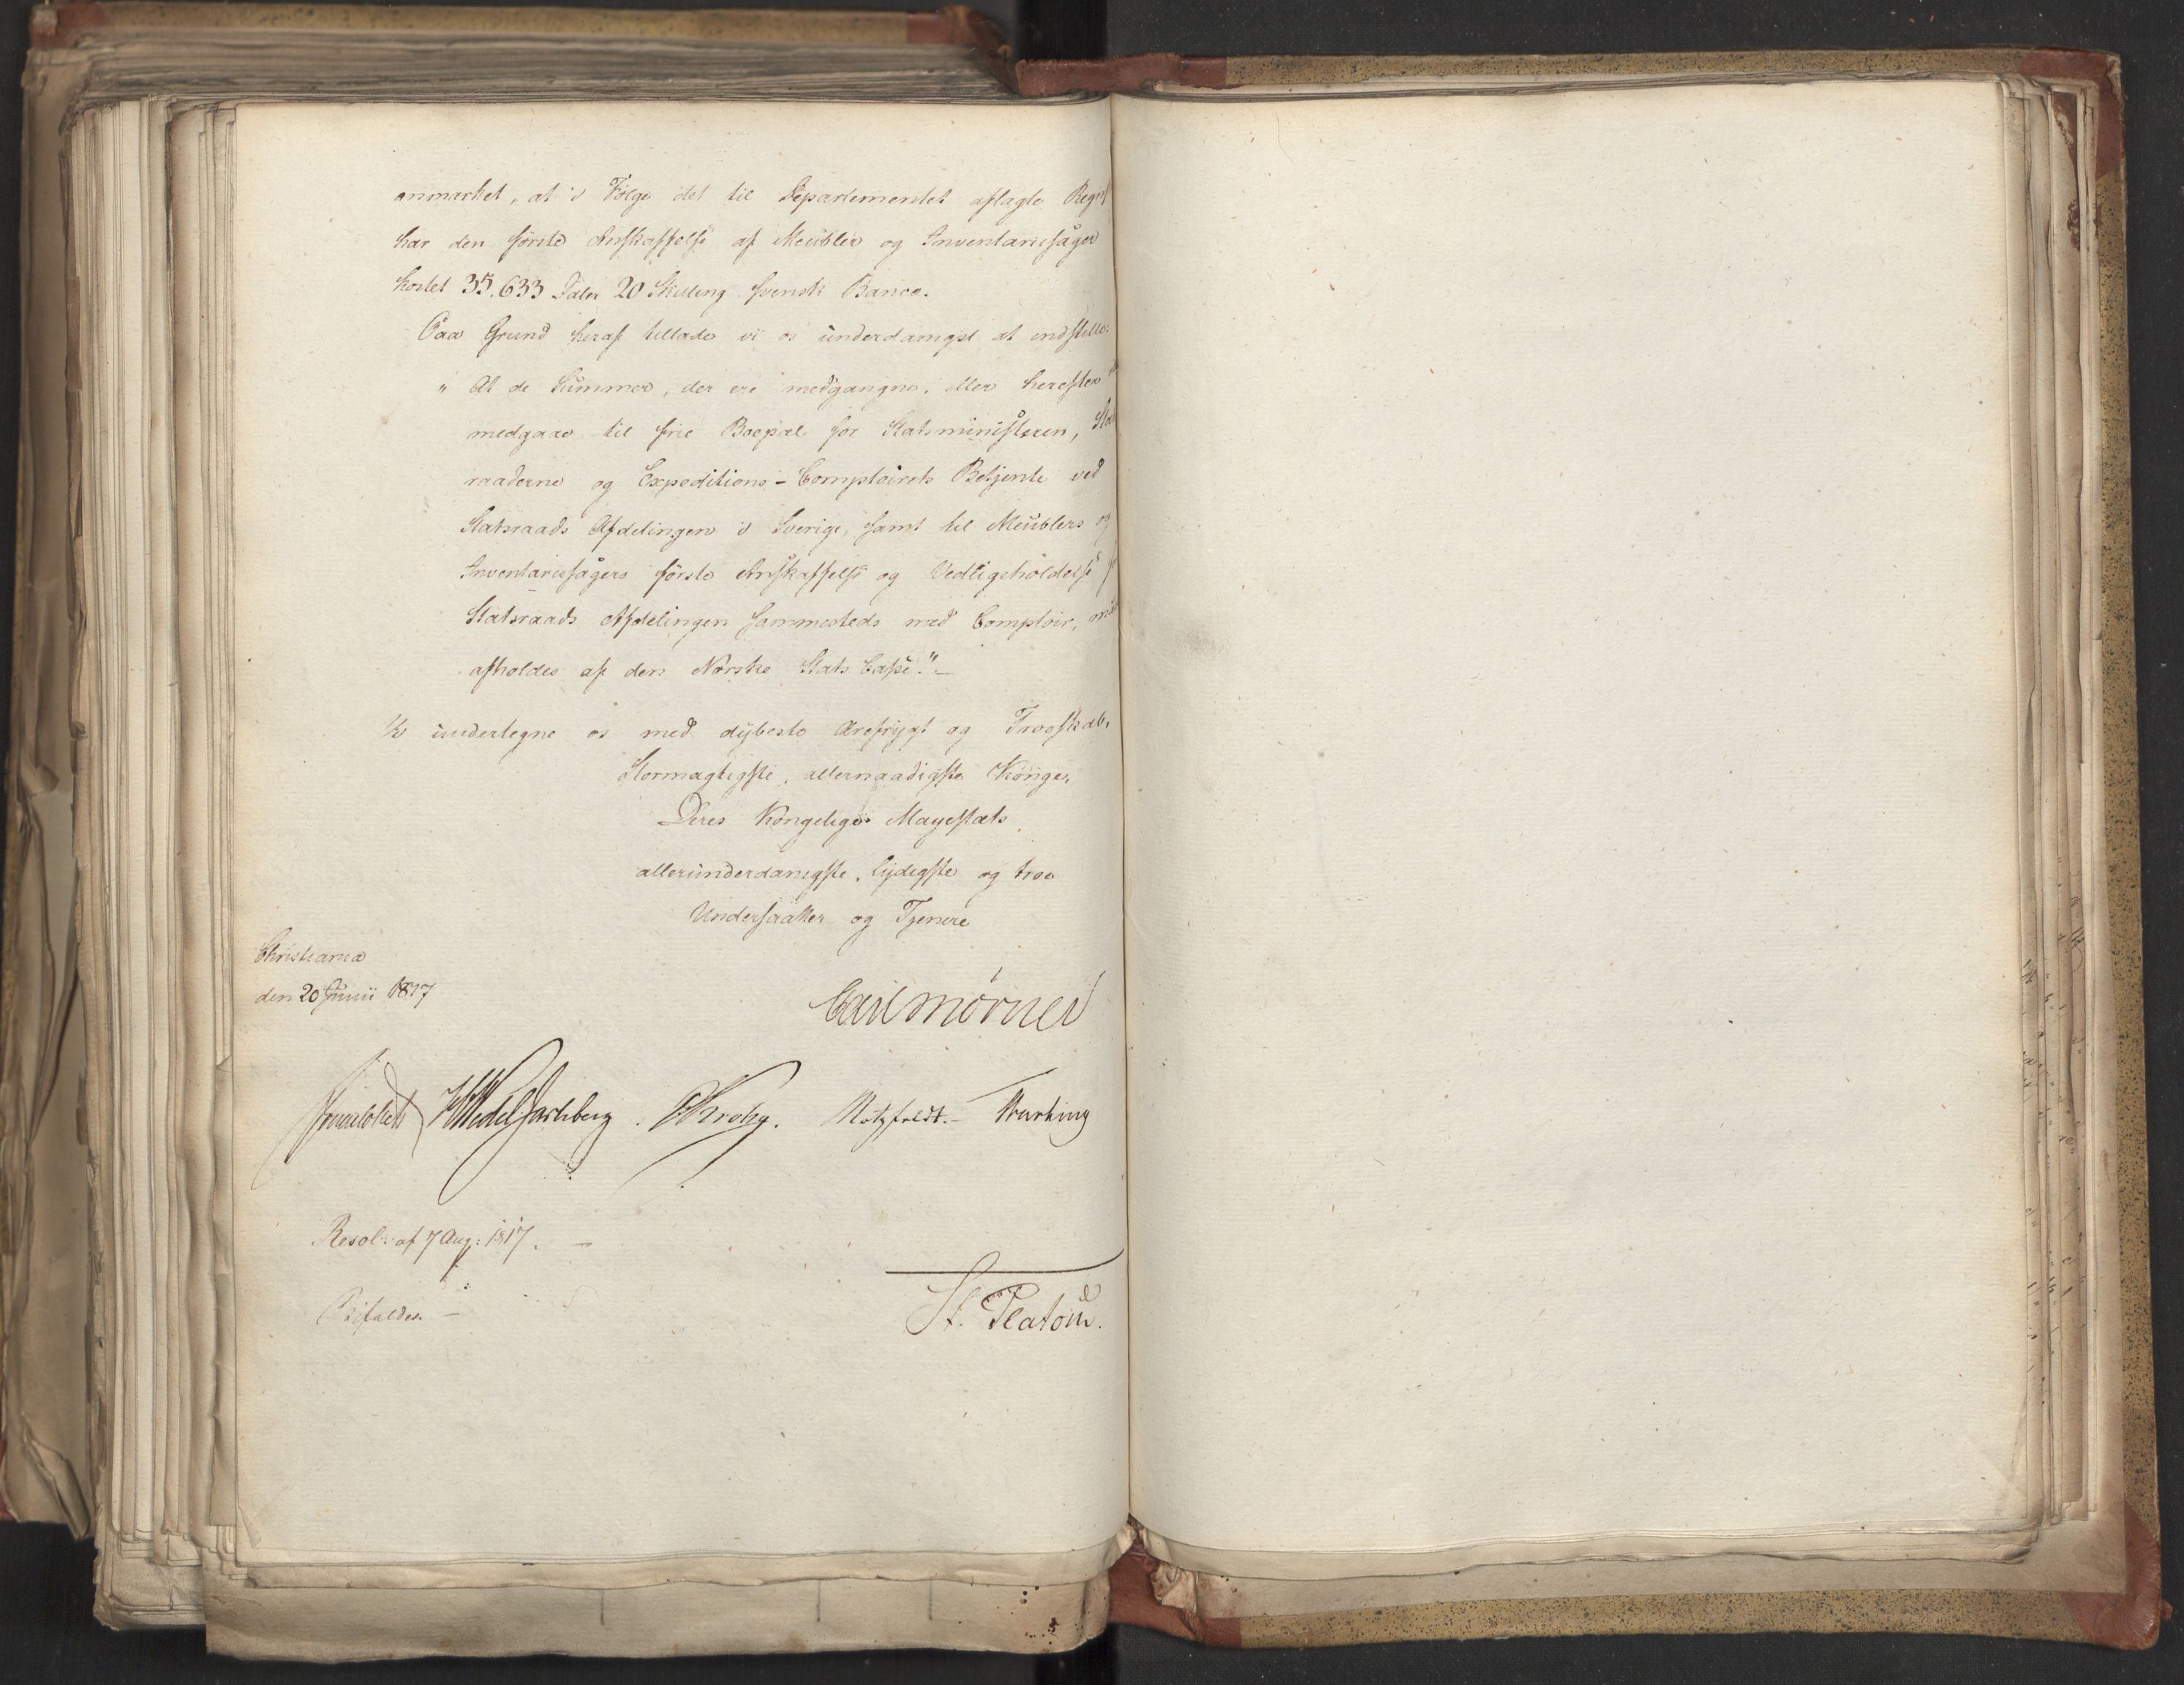 anmærket, at i Følge det til Departementet aflagte Regn
har den første Anskaffelse af Meubler og Inventariesager
kostet 35.633 Rdler 20 Skilling svensk Banco.
Paa Grund heraf tillade vi os underdanigst at indstille:
" At de Summer, der ere medgangne, eller herefter
medgaae til frie Boepæl for Statsministeren, Stats
raaderne og Expeditions-Comptoirets Betjente ved
Statsraads Afdelingen i Sverige, samt til Meublers og
Inventariesagers første Anskaffelse og Vedligeholdelse
Statsraads Afdelingen sammesteds med Comptoir, maa
afholdes af den Norske Stats Casse."
Vi undertegne os med dybeste Ærefrygt og Troeskab.
Stormægtigste, allernaadigste Konge.
Deres Kongelige Mayestæts
allerunderdanigste, lydigste og troe
Undersaatter og Tjenere
Christiania
den 20 Junii 1817
Carl Mörner
Sommerhielm HWedel Jarlsberg. CKrohg. Motzfeldt. - Wærhing
Resol: af 7 Aug: 1817. -
Bifaldes. -
St. Platoúú.